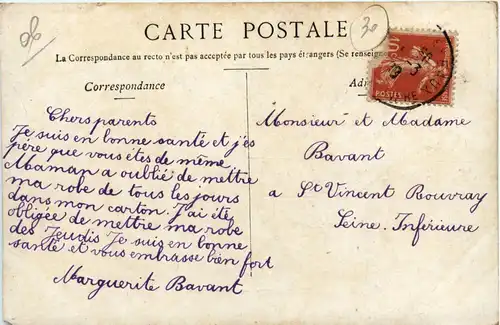 CARTE POSTALE
30
La Correspondance au recto n'est pas acceptée par tous les pays étrangers (Se renseign
Correspondance
Ad
POSTES
10
Chers parents
Je suis en bonne santé et j'es
père que vous êtes de même
Maman a oublié de mettre
ma robe de tous les jours
dans mon carton. J'ai été
obligée de mettre ma robe
des Jeudis Je suis en bonne
santé et vous embrasse bien fort
Marguerite Bavant
Monsieur et Madame
Bavant
a St Vincent Rouvray
Seine. Inférieure